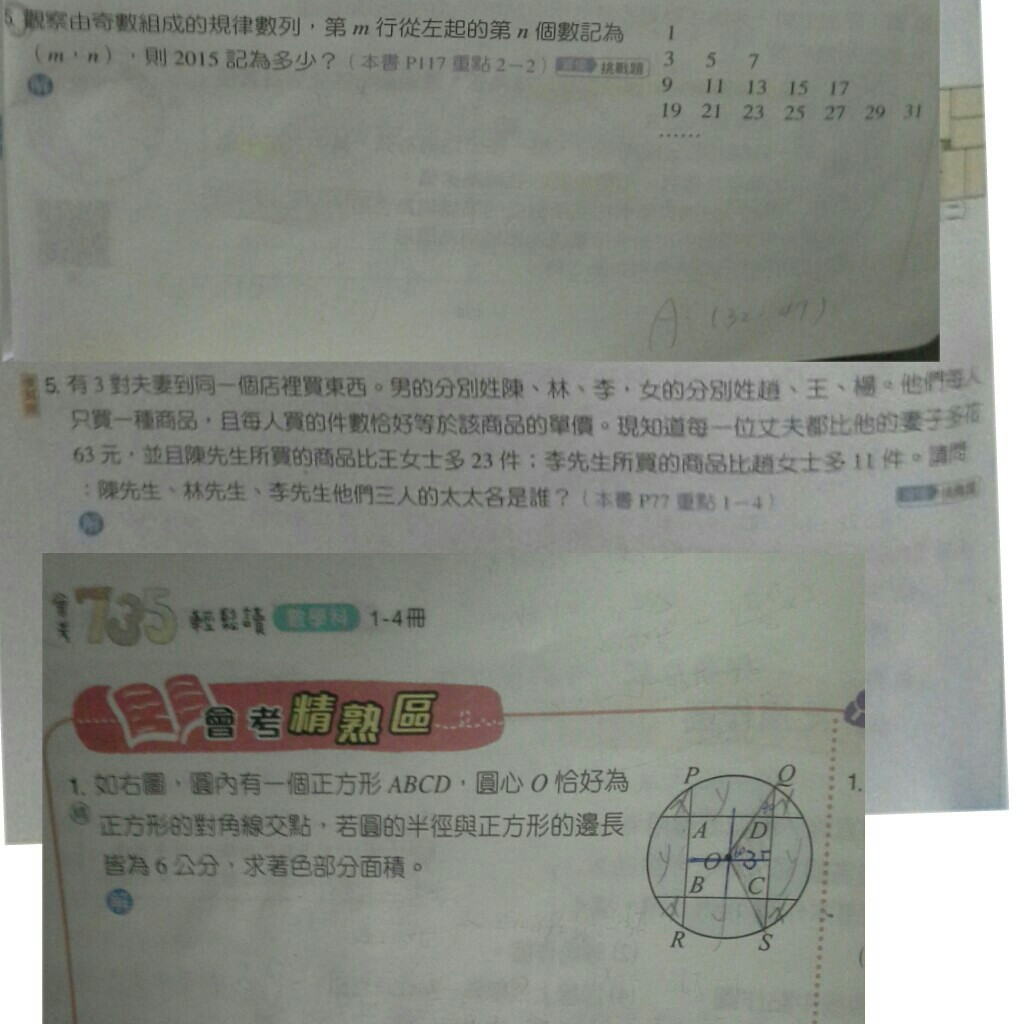 觀察由奇數組成的規律數列，第 m 行從左起的第 n 個數記為
（m，n），則 2015 記為多少？（本書 P117 重點 2－2） 挑戰題
解
1
3 5 7
9 11 13 15 17
19 21 23 25 27 29 31
……
A：(32，47)
5. 有 3 對夫妻到同一個店裡買東西。男的分別姓陳、林、李，女的分別姓趙、王、楊。他們每人
只買一種商品，且每人買的件數恰好等於該商品的單價。現知道每一位丈夫都比他的妻子多花
63 元，並且陳先生所買的商品比王女士多 23 件；李先生所買的商品比趙女士多 11 件。請問
：陳先生、林先生、李先生他們三人的太太各是誰？（本書 P77 重點 1－4）
解
會考 735 輕鬆讀 數學科 1-4冊
會考精熟區
1. 如右圖，圓內有一個正方形 ABCD，圓心 O 恰好為
正方形的對角線交點，若圓的半徑與正方形的邊長
皆為 6 公分，求著色部分面積。
解
P Q
x y x
A D
y O 3 y
B C
x x
R S
1.